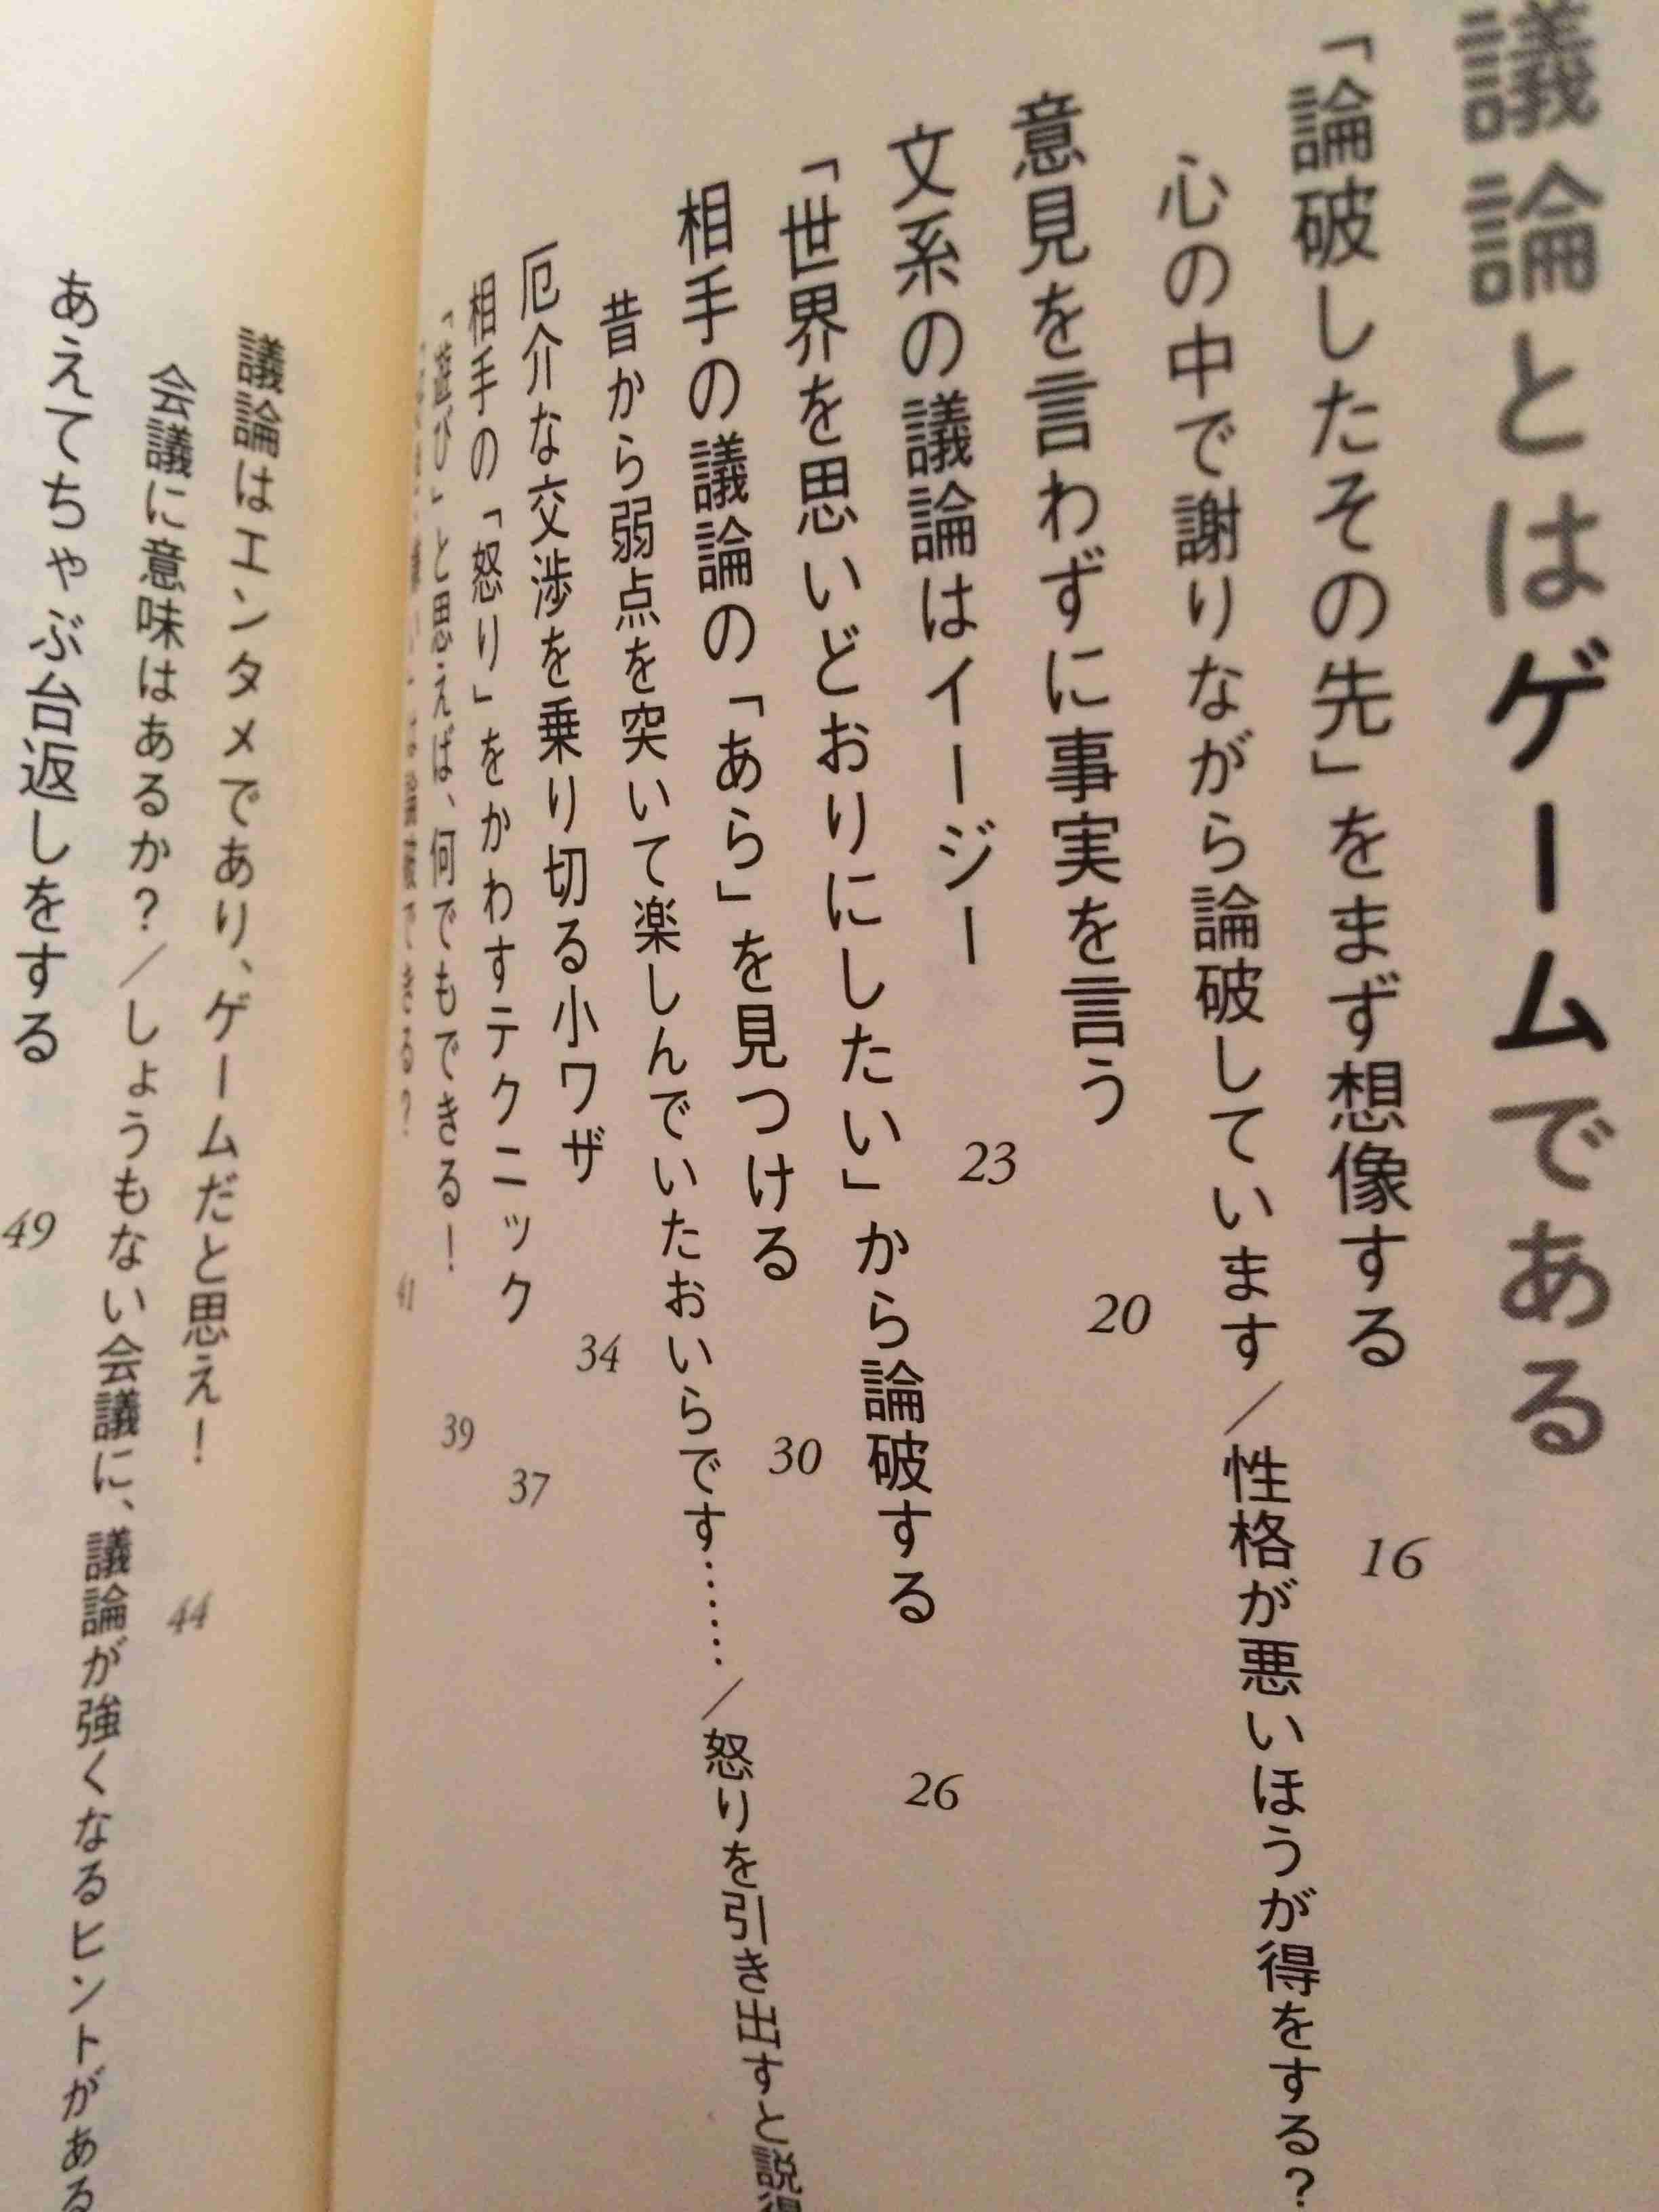 議論とはゲームである
「論破したその先」をまず想像する 16
心の中で謝りながら論破しています/性格が悪いほうが得をする?
意見を言わずに事実を言う 20
文系の議論はイージー 23
「世界を思いどおりにしたい」から論破する 26
相手の議論の「あら」を見つける 30
昔から弱点を突いて楽しんでいたおいらです……/怒りを引き出すと説得
厄介な交渉を乗り切る小ワザ 34
相手の「怒り」をかわすテクニック 37
「遊び」と思えば、何でもできる! 39
41
議論はエンタメであり、ゲームだと思え! 44
会議に意味はあるか?/しょうもない会議に、議論が強くなるヒントがある
あえてちゃぶ台返しをする 49